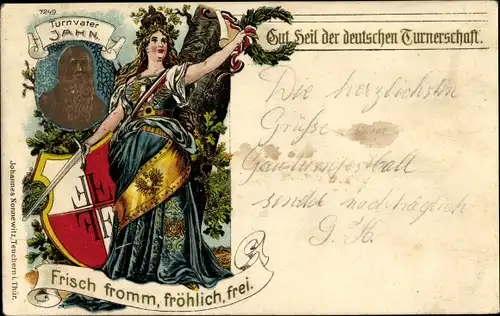 7249.
Turnvater
JAHN.
Gut Heil der deutschen Turnerschaft.
Die herzlichsten
Grüße vom
Gauturnfestball
sendet nachträglich
G. H.
Frisch fromm, fröhlich, frei.
Johannes Nonnewitz, Teuchern i. Thür.